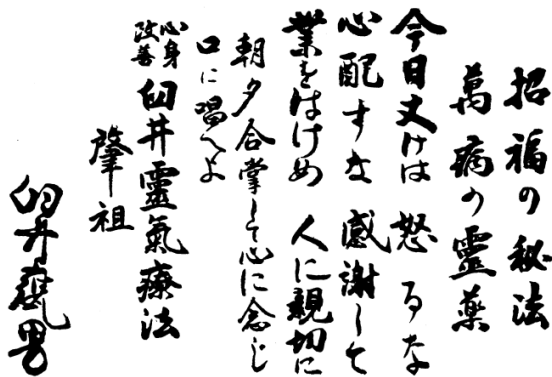 招福の秘法
萬病の霊薬
今日丈けは 怒るな
心配すな 感謝して
業をはけめ 人に親切に
朝夕合掌して心に念じ
口に唱へよ
心身
改善
臼井靈氣療法
肇祖
臼井甕男